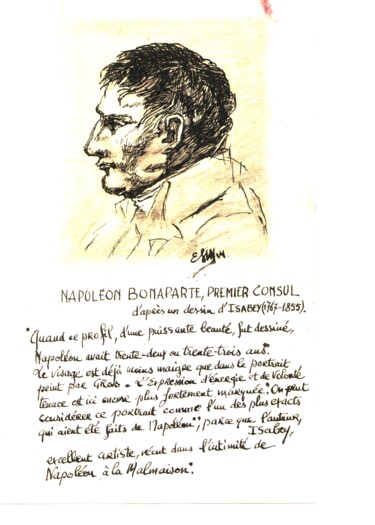 NAPOLÉON BONAPARTE, PREMIER CONSUL
d'après un dessin d'ISABEY (1767-1855).
"Quand ce profil, d'une puissante beauté, fut dessiné,
Napoléon avait trente-deux ou trente-trois ans.
Le visage est déjà moins maigre que dans le portrait
peint par GROS. L'Expression d'énergie et de volonté
tenace est ici encore plus fortement marquée. On peut
considérer ce portrait comme l'un des plus exacts
qui aient été faits de Napoléon", parce que l'auteur,
ISABEY,
excellent artiste, vécut dans l'intimité de
Napoléon à la Malmaison".